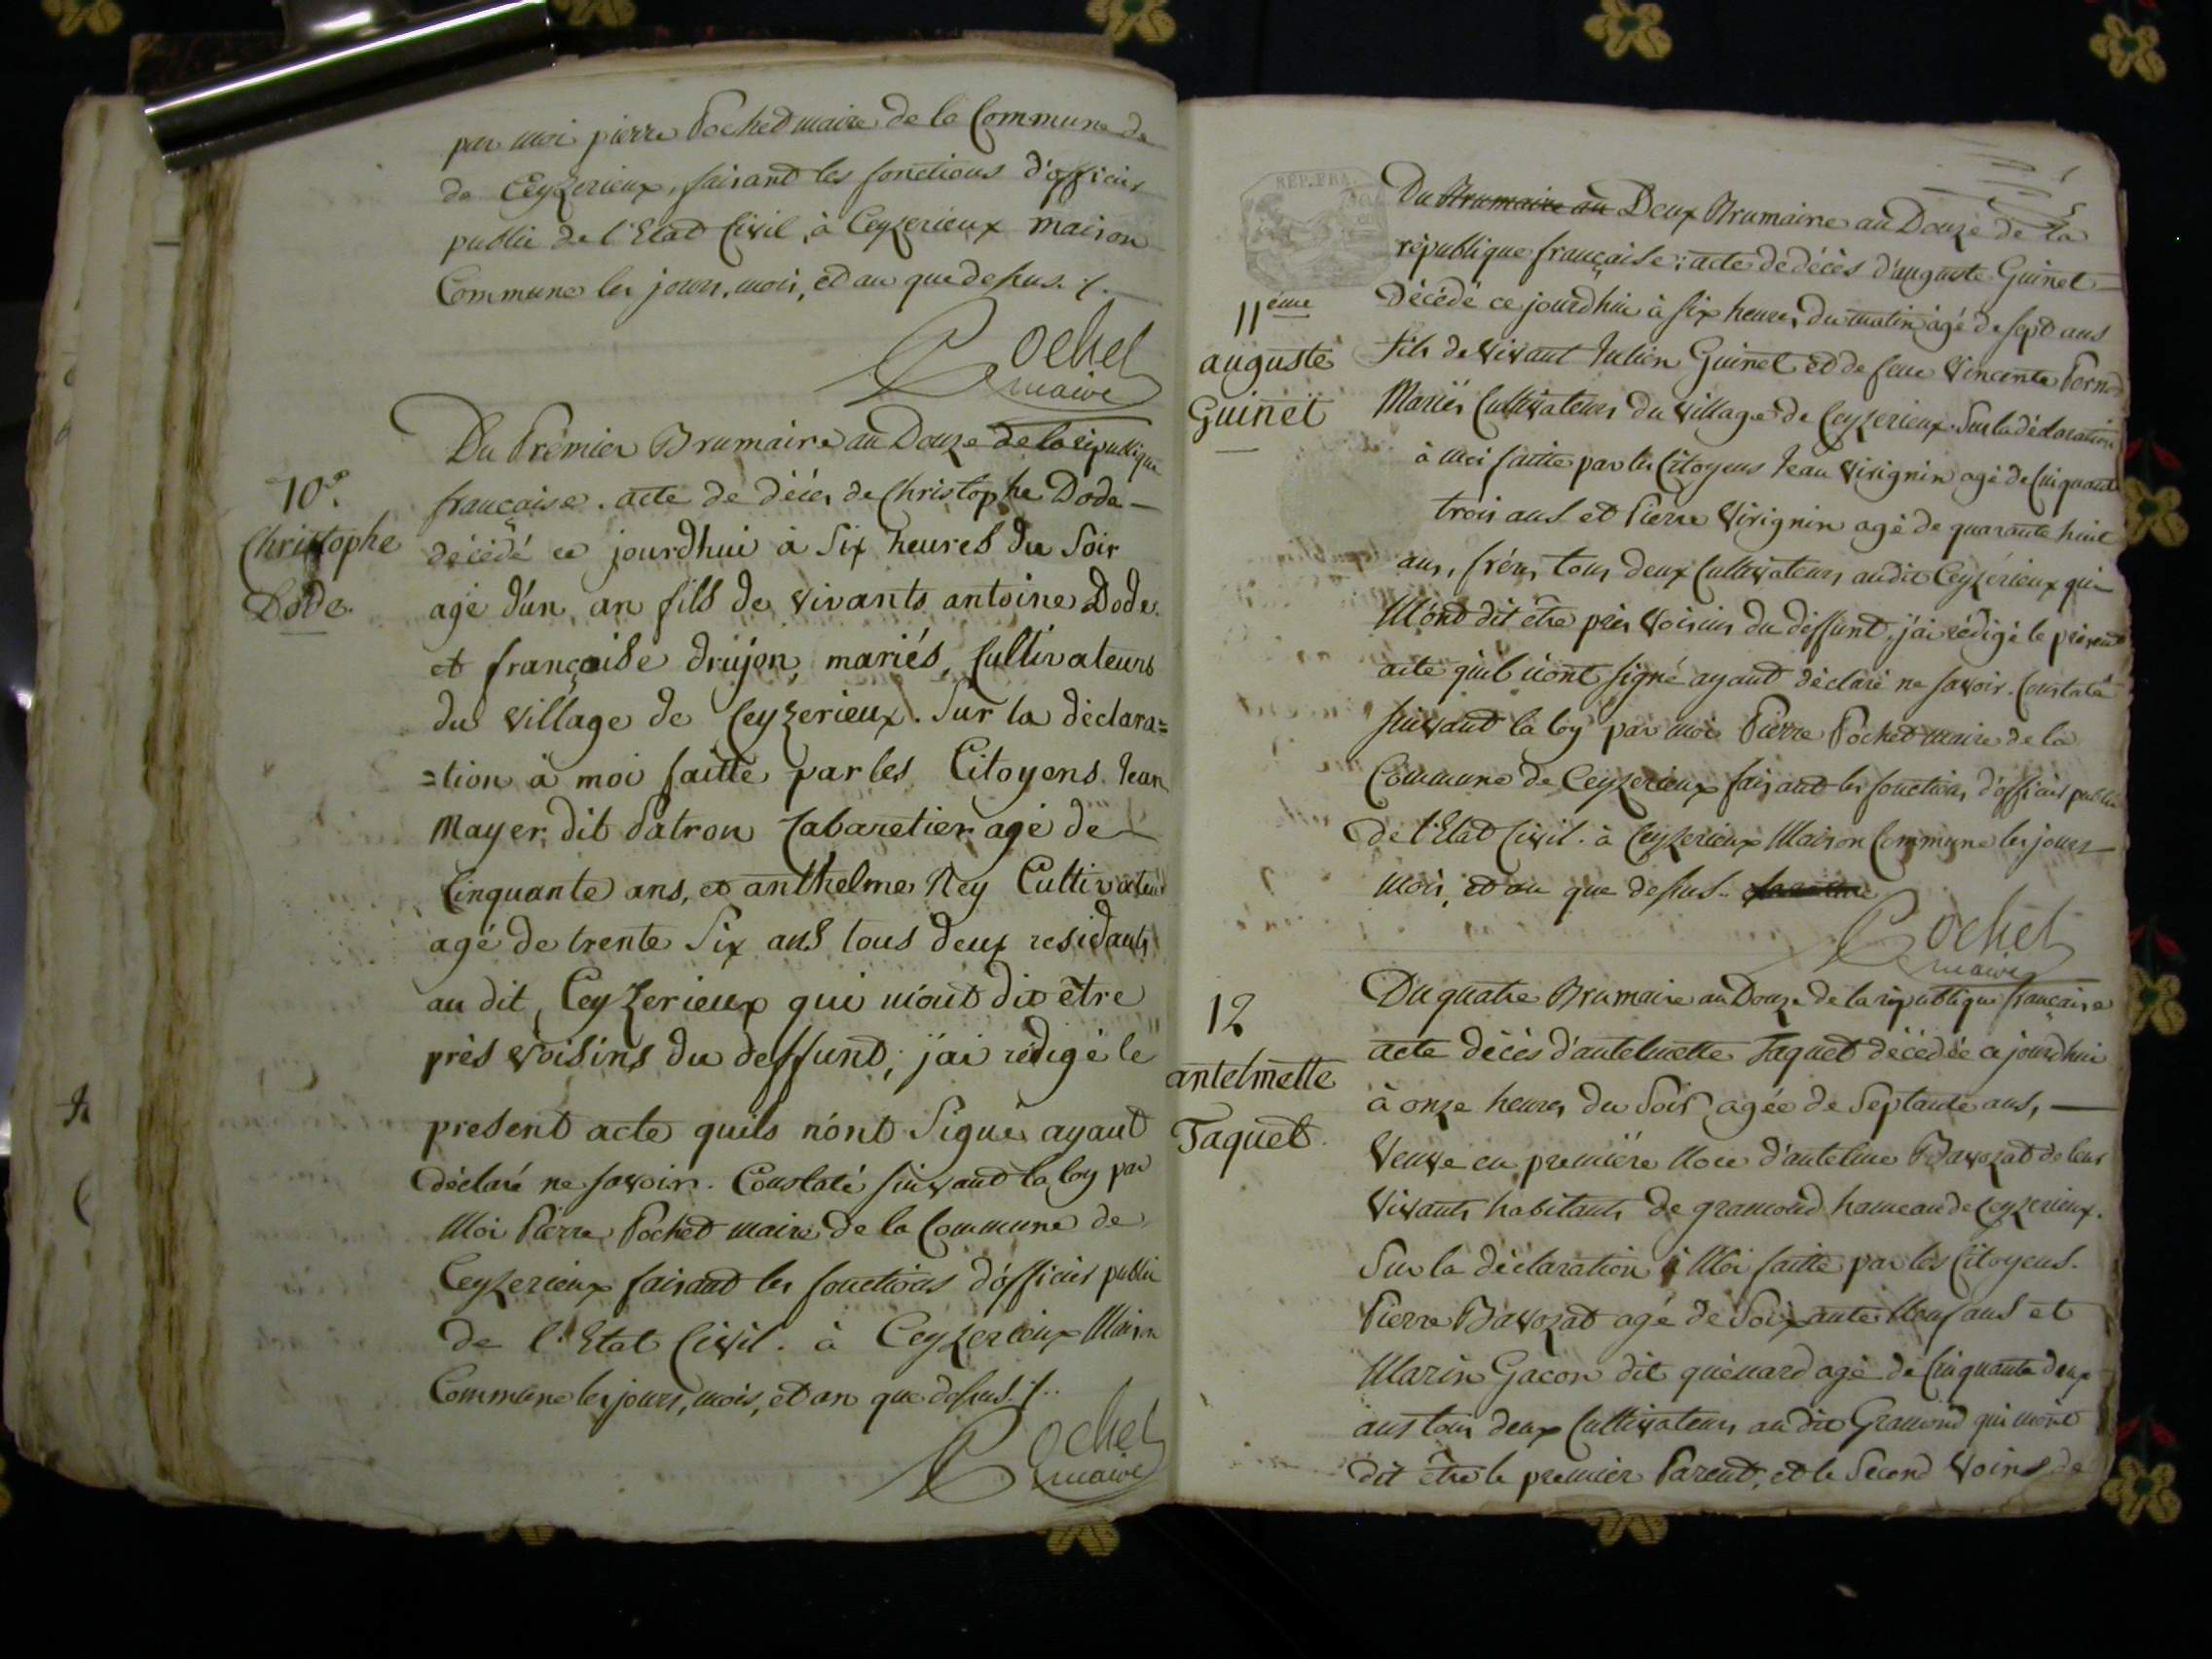 par moi pierre Pochet maire de la Commune de
de Ceyzerieux, faisant les fonctions d'officier
public de l'Etat Civil, à Ceyzerieux maison
Commune les jours, mois, et an que dessus ./.
Pochet
maire
10e.
Christophe
Dode.
Du Premier Brumaire an Douze de la république
française. acte de décès de Christophe Dode
décédé ce jourdhui à Six heures du Soir
agé d'un an fils de vivants antoine Dode
et françoise drujon, mariés, Cultivateurs
du village de Ceyzerieux. Sur la déclara=
=tion à moi faitte par les Citoyens Jean
Mayer dit Patron Cabaretier agé de
Cinquante ans, et anthelme Rey Cultivateur
agé de trente Six ans tous deux residants
au dit Ceyzerieux qui m'ont dit être
près voisins du deffunt; j'ai rédigé le
present acte quils n'ont Signé ayant
déclaré ne savoir. Constaté suivant la loy par
Moi Pierre Pochet maire de la Commune de
Ceyzerieux faisant les fonctions d'officier public
de l'Etat Civil. à Ceyzerieux Maison
Commune les jours, mois, et an que dessus ./.
Pochet
maire
REP. FRA.
11ème
auguste
Guinet
Du Brumaire an Deux Brumaire an Douze de la
république française; acte de décès d'auguste Guinet
Décédé ce jourdhui à six heures du matin agé de sept ans
fils de vivant Julien Guinet et de feue Vincente
Mariés Cultivateurs du village de Ceyzerieux. Sur la déclaration
à moi faitte par les Citoyens Jean Virignin agé de Cinquante
trois ans et Pierre Virignin agé de quarante huit
ans, frères tous deux Cultivateurs audit Ceyzérieux qui
M'ont dit être près voisins du deffunt, j'ai rédigé le présent
acte quils n'ont signé ayant déclaré ne savoir. Constaté
suivant la loy par moi Pierre Pochet maire de la
Commune de Ceyzerieux faisant les fonctions d'officier public
de l'Etat Civil. à Ceyzerieux Maison Commune les jours
mois, et an que dessus.
Pochet
maire
12
antelmette
Taquet.
Du quatre Brumaire an Douze de la république française
acte décès d'antelmette Taquet décédée ce jourdhui
à onze heures du Soir agée de Septante ans,
Veuve en première Noce d'antelme Bavozat de leur
Vivants habitants de gramond hameau de Ceyzerieux.
Sur la déclaration à Moi faitte par les Citoyens.
Pierre Bavozat agé de Soixante Neuf ans et
Marin Gacon dit quénard agé de Cinquante deux
ans tous deux Cultivateurs au dit Gramond qui m'ont
dit être le premier Parent, et le Second Voins de